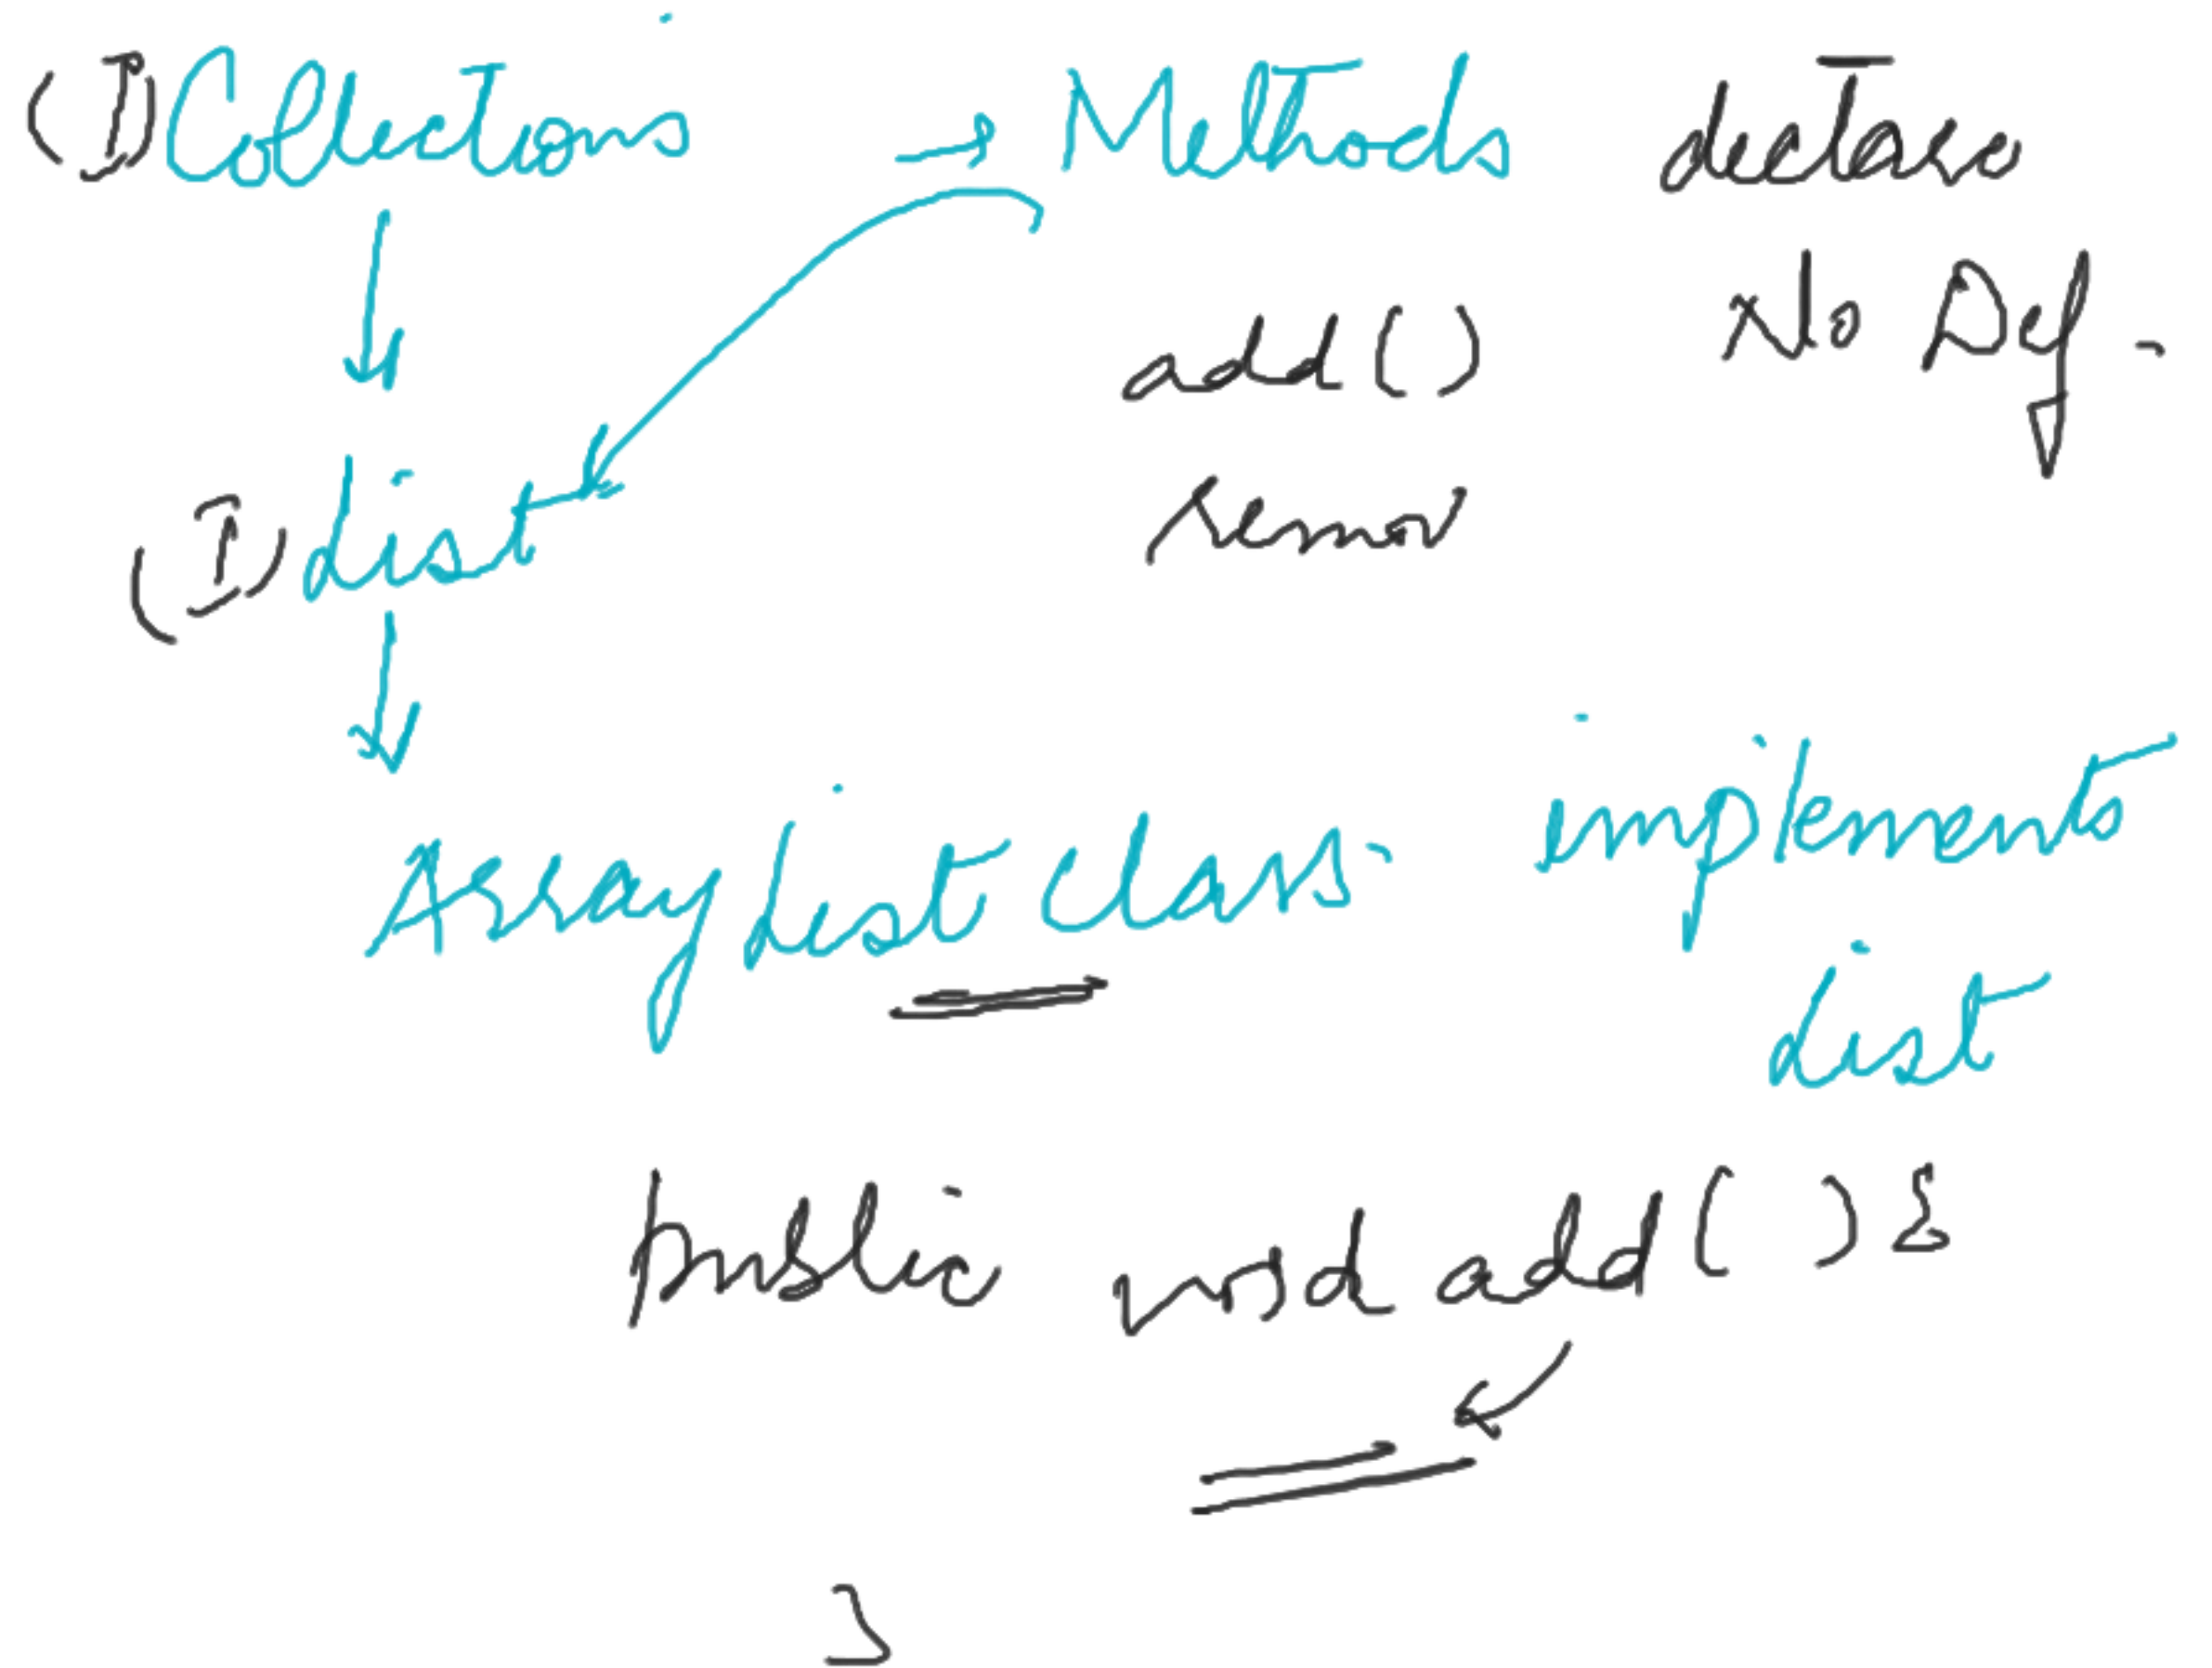 (I) Collections → Methods declare
add() No Def.
remov
(I) List
ArrayList class implements
List
public void add() {
}